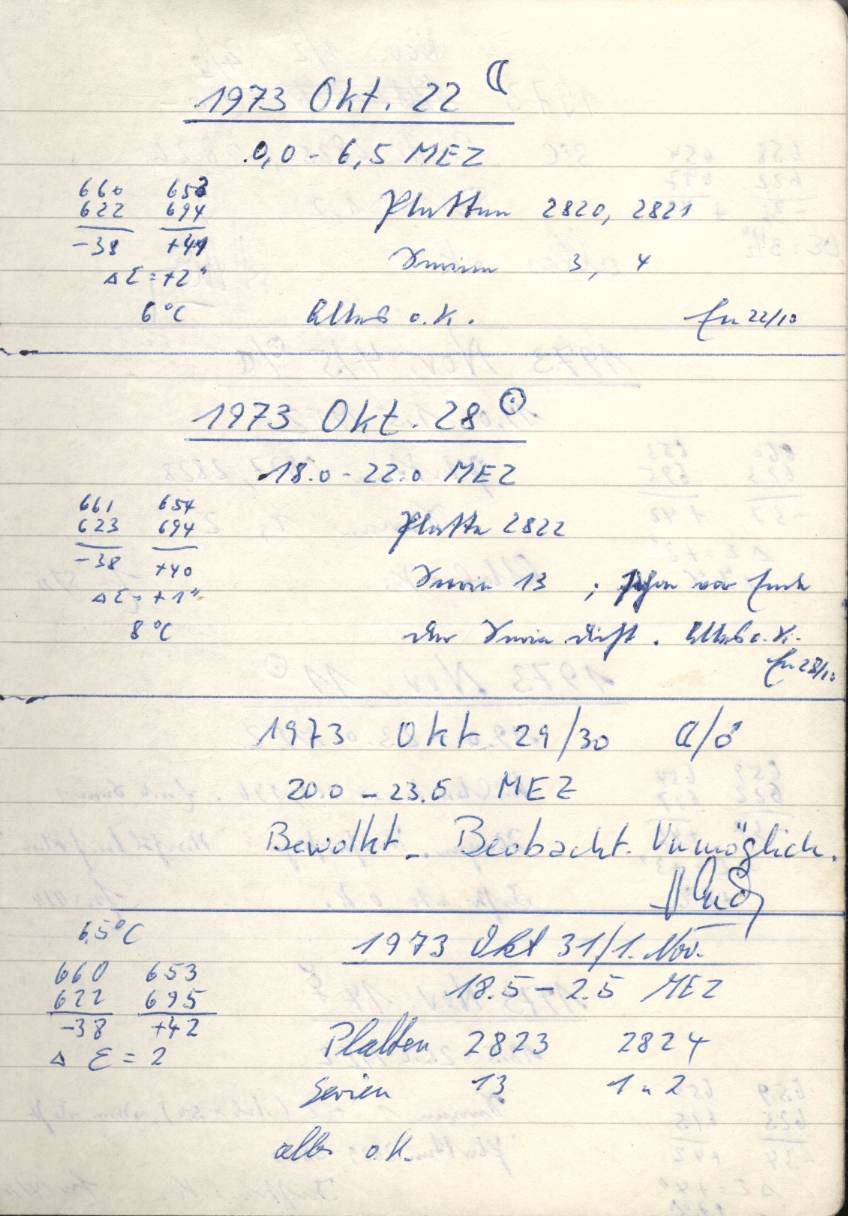 1973 Okt. 22 ☾
0,0 - 6,5 MEZ
660 653
622 694
-38 +41
Δ ε = +2"
6°C
Platten 2820, 2821
Serien 3, 4
Alles o.k.
22/10
1973 Okt. 28 ☉
18.0 - 22.0 MEZ
661 654
623 694
-38 +40
Δ ε = +1"
8°C
Platte 2822
Serie 13 ; vor Ende
der Serie dicht. Alles o.k.
28/10
1973 Okt 29/30 ☾/♂
20.0 - 23.5 MEZ
Bewolkt - Beobacht. Unmöglich.
6,5°C
1973 Okt 31/1. Nov.
18.5 - 2.5 MEZ
660 653
622 695
-38 +42
Δ ε = 2
Platten 2823 2824
Serien 13 1 u 2
alles o.k.